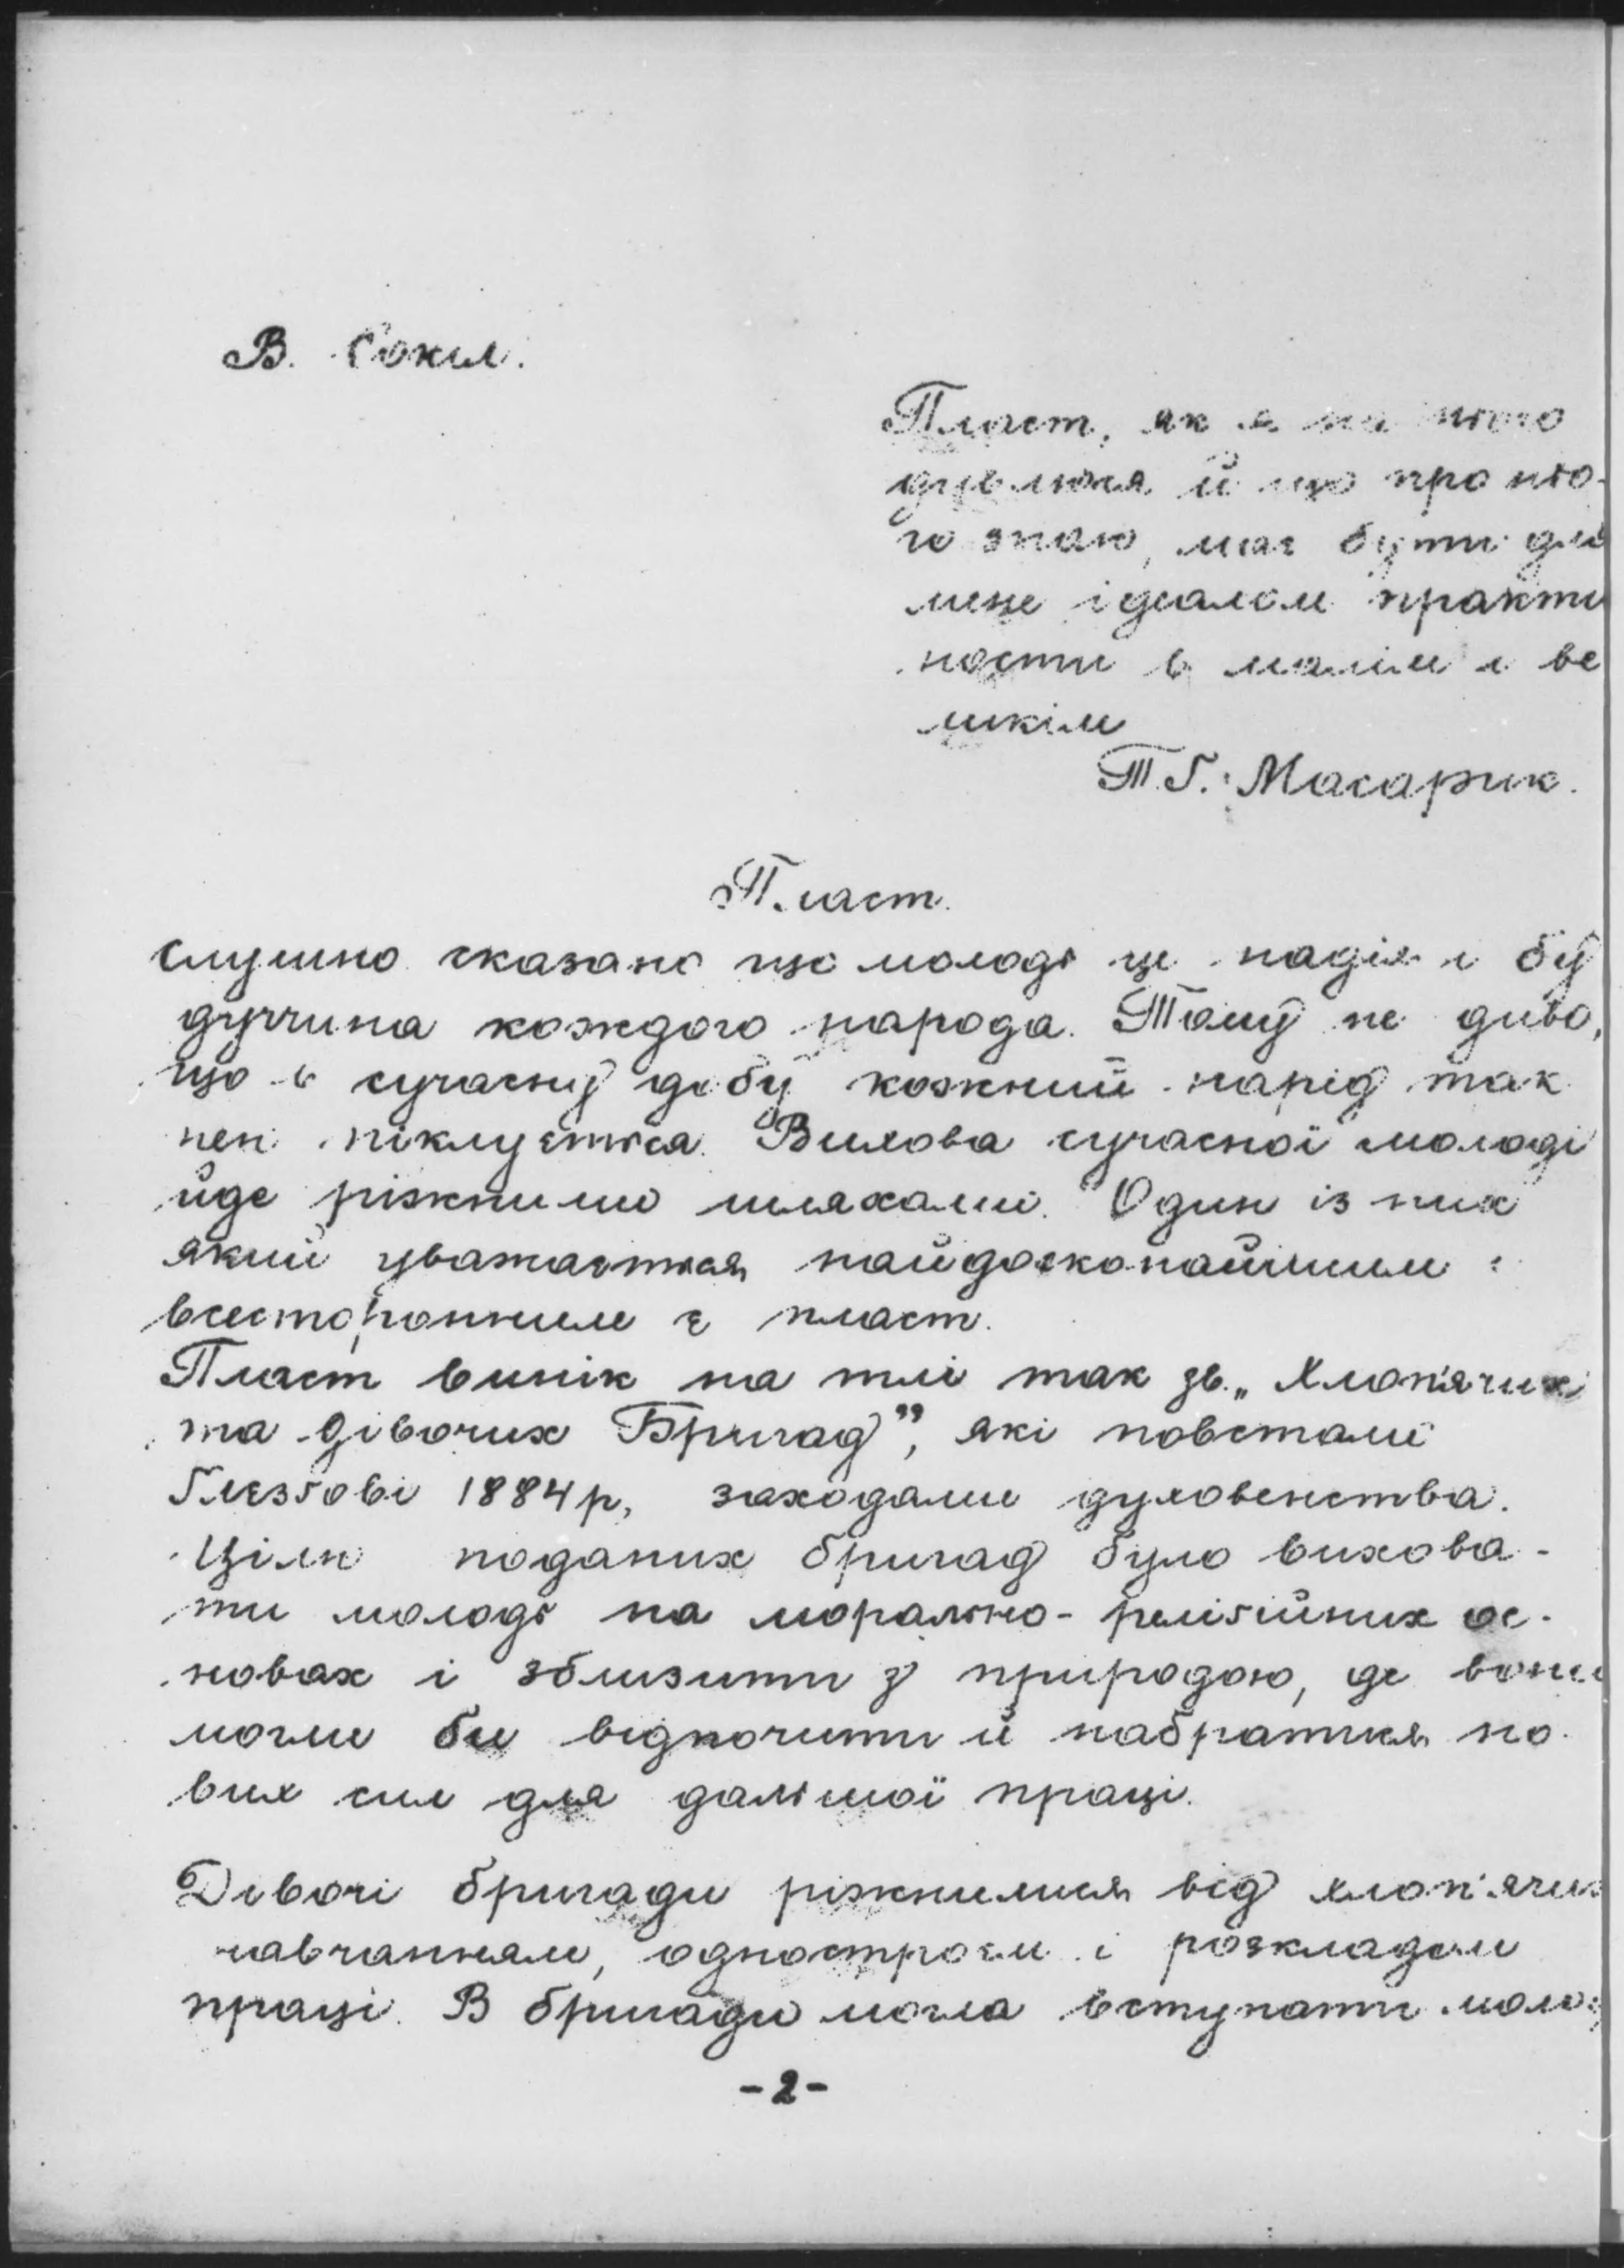 В. Сокил.
Пласт, як я на нього
дивлюся й що про ньо-
го знаю, має бути для
мене ідеалом практи
ности в малім і ве
ликім
Т.Ґ. Масарик.
Пласт.
Слушно сказано що молодь це надія і бу
дуччина кождого народа. Тому не диво,
що в сучасну добу кожний нарід так
нею піклується. Вихова сучасної молоді
йде ріжними шляхами. Один із них
який уважається найдосконайшим і
всесторонним є пласт.
Пласт виник на тлі так зв. „Хлоп'ячих
та дівочих Бригад”, які повстали
Ґлєзґові 1884 р, заходами духовенства.
Ціль поданих бригад було вихова-
ти молодь на морально-реліґійних ос-
новах і зблизити з природою, де вони
могли би відпочити й набратися но-
вих сил для дальшої праці.
Дівочі бригади ріжнилися від хлоп'ячих
навчанням, одностроєм і розкладом
праці. В бригади могла вступати моло
-2-